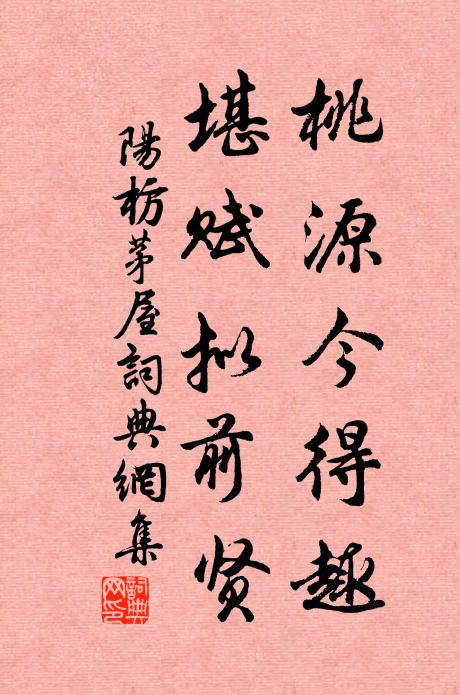 桃源今得趣
堪赋拟前贤
陽枋茅屋詞典網集
詞典網印